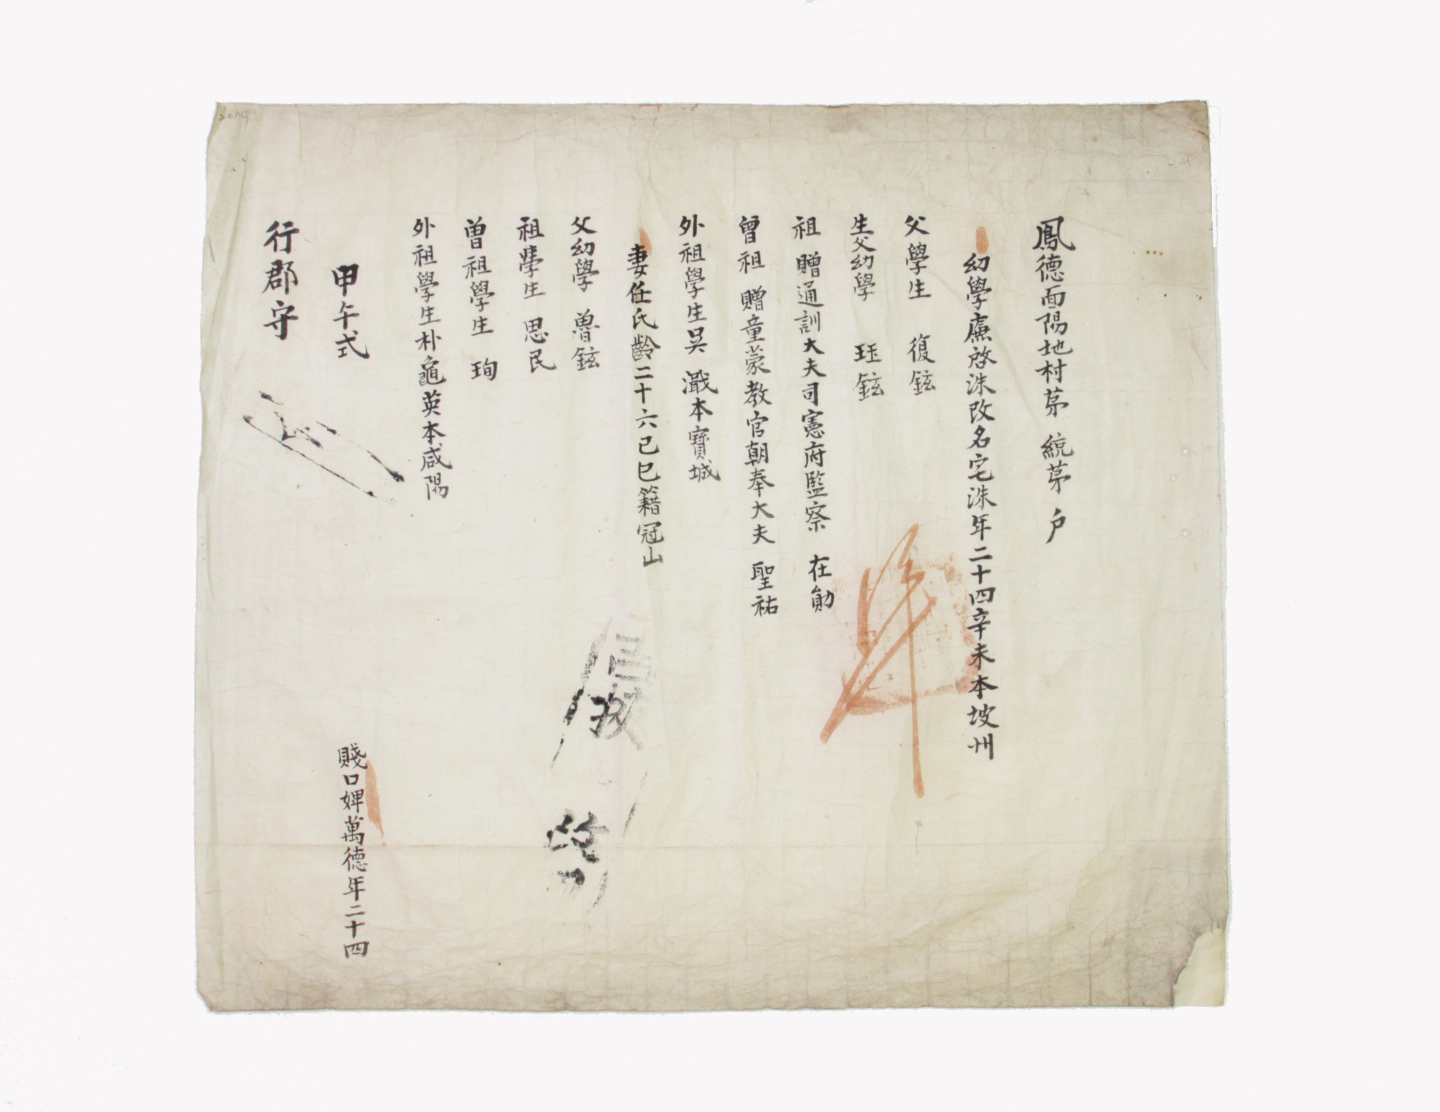 鳳德面陽地村苐 統苐 戶
幼學廉啓洙改名宅洙年二十四辛未本坡州
父學生 復鉉
生父幼學 珏鉉
祖 贈通訓大夫司憲府監察 在勛
曾祖 贈童蒙教官朝奉大夫 聖祐
外祖學生吳 濈本寶城
妻任氏齡二十六己巳籍冠山
父幼學 魯鉉
祖學生 思民
曾祖學生 珣
外祖學生朴龜英本咸陽
賤口婢萬德年二十四
甲午式
行郡守